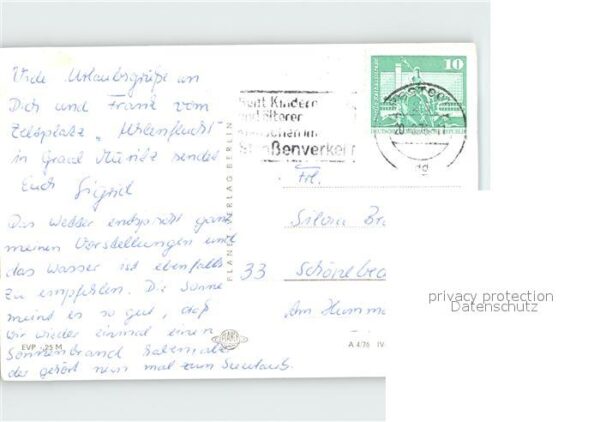 Viele Urlaubsgrüße an
Dich und Frank vom
Zeltplatz „Uhlenflucht"
in Graal Müritz sendet
Euch Sigrid
Das Wetter entspricht ganz
meinen Vorstellungen und
das Wasser ist ebenfalls
zu empfehlen. Die Sonne
meint es so gut, daß
wir wieder einmal einen
Sonnenbrand haben
der gehört nun mal zum
EVP -,25 M
PLANET-VERLAG BERLIN
Kindern
älterer
Menschen im
Straßenverkehr
10
DEUTSCHE DEMOKRATISCHE REPUBLIK
Frl.
Silvia
33
Schönebe
Am Humme
A 4/76 IV
privacy protection
Datenschutz